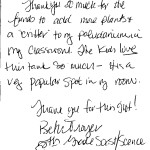 Thank you so much for the
funds to add more plants &
a "critter" to my paludarium in
my classroom. The kids love
this tank so much - it is a
very popular spot in my room.
Thank you for this gift!
Beth
6th Grade Science